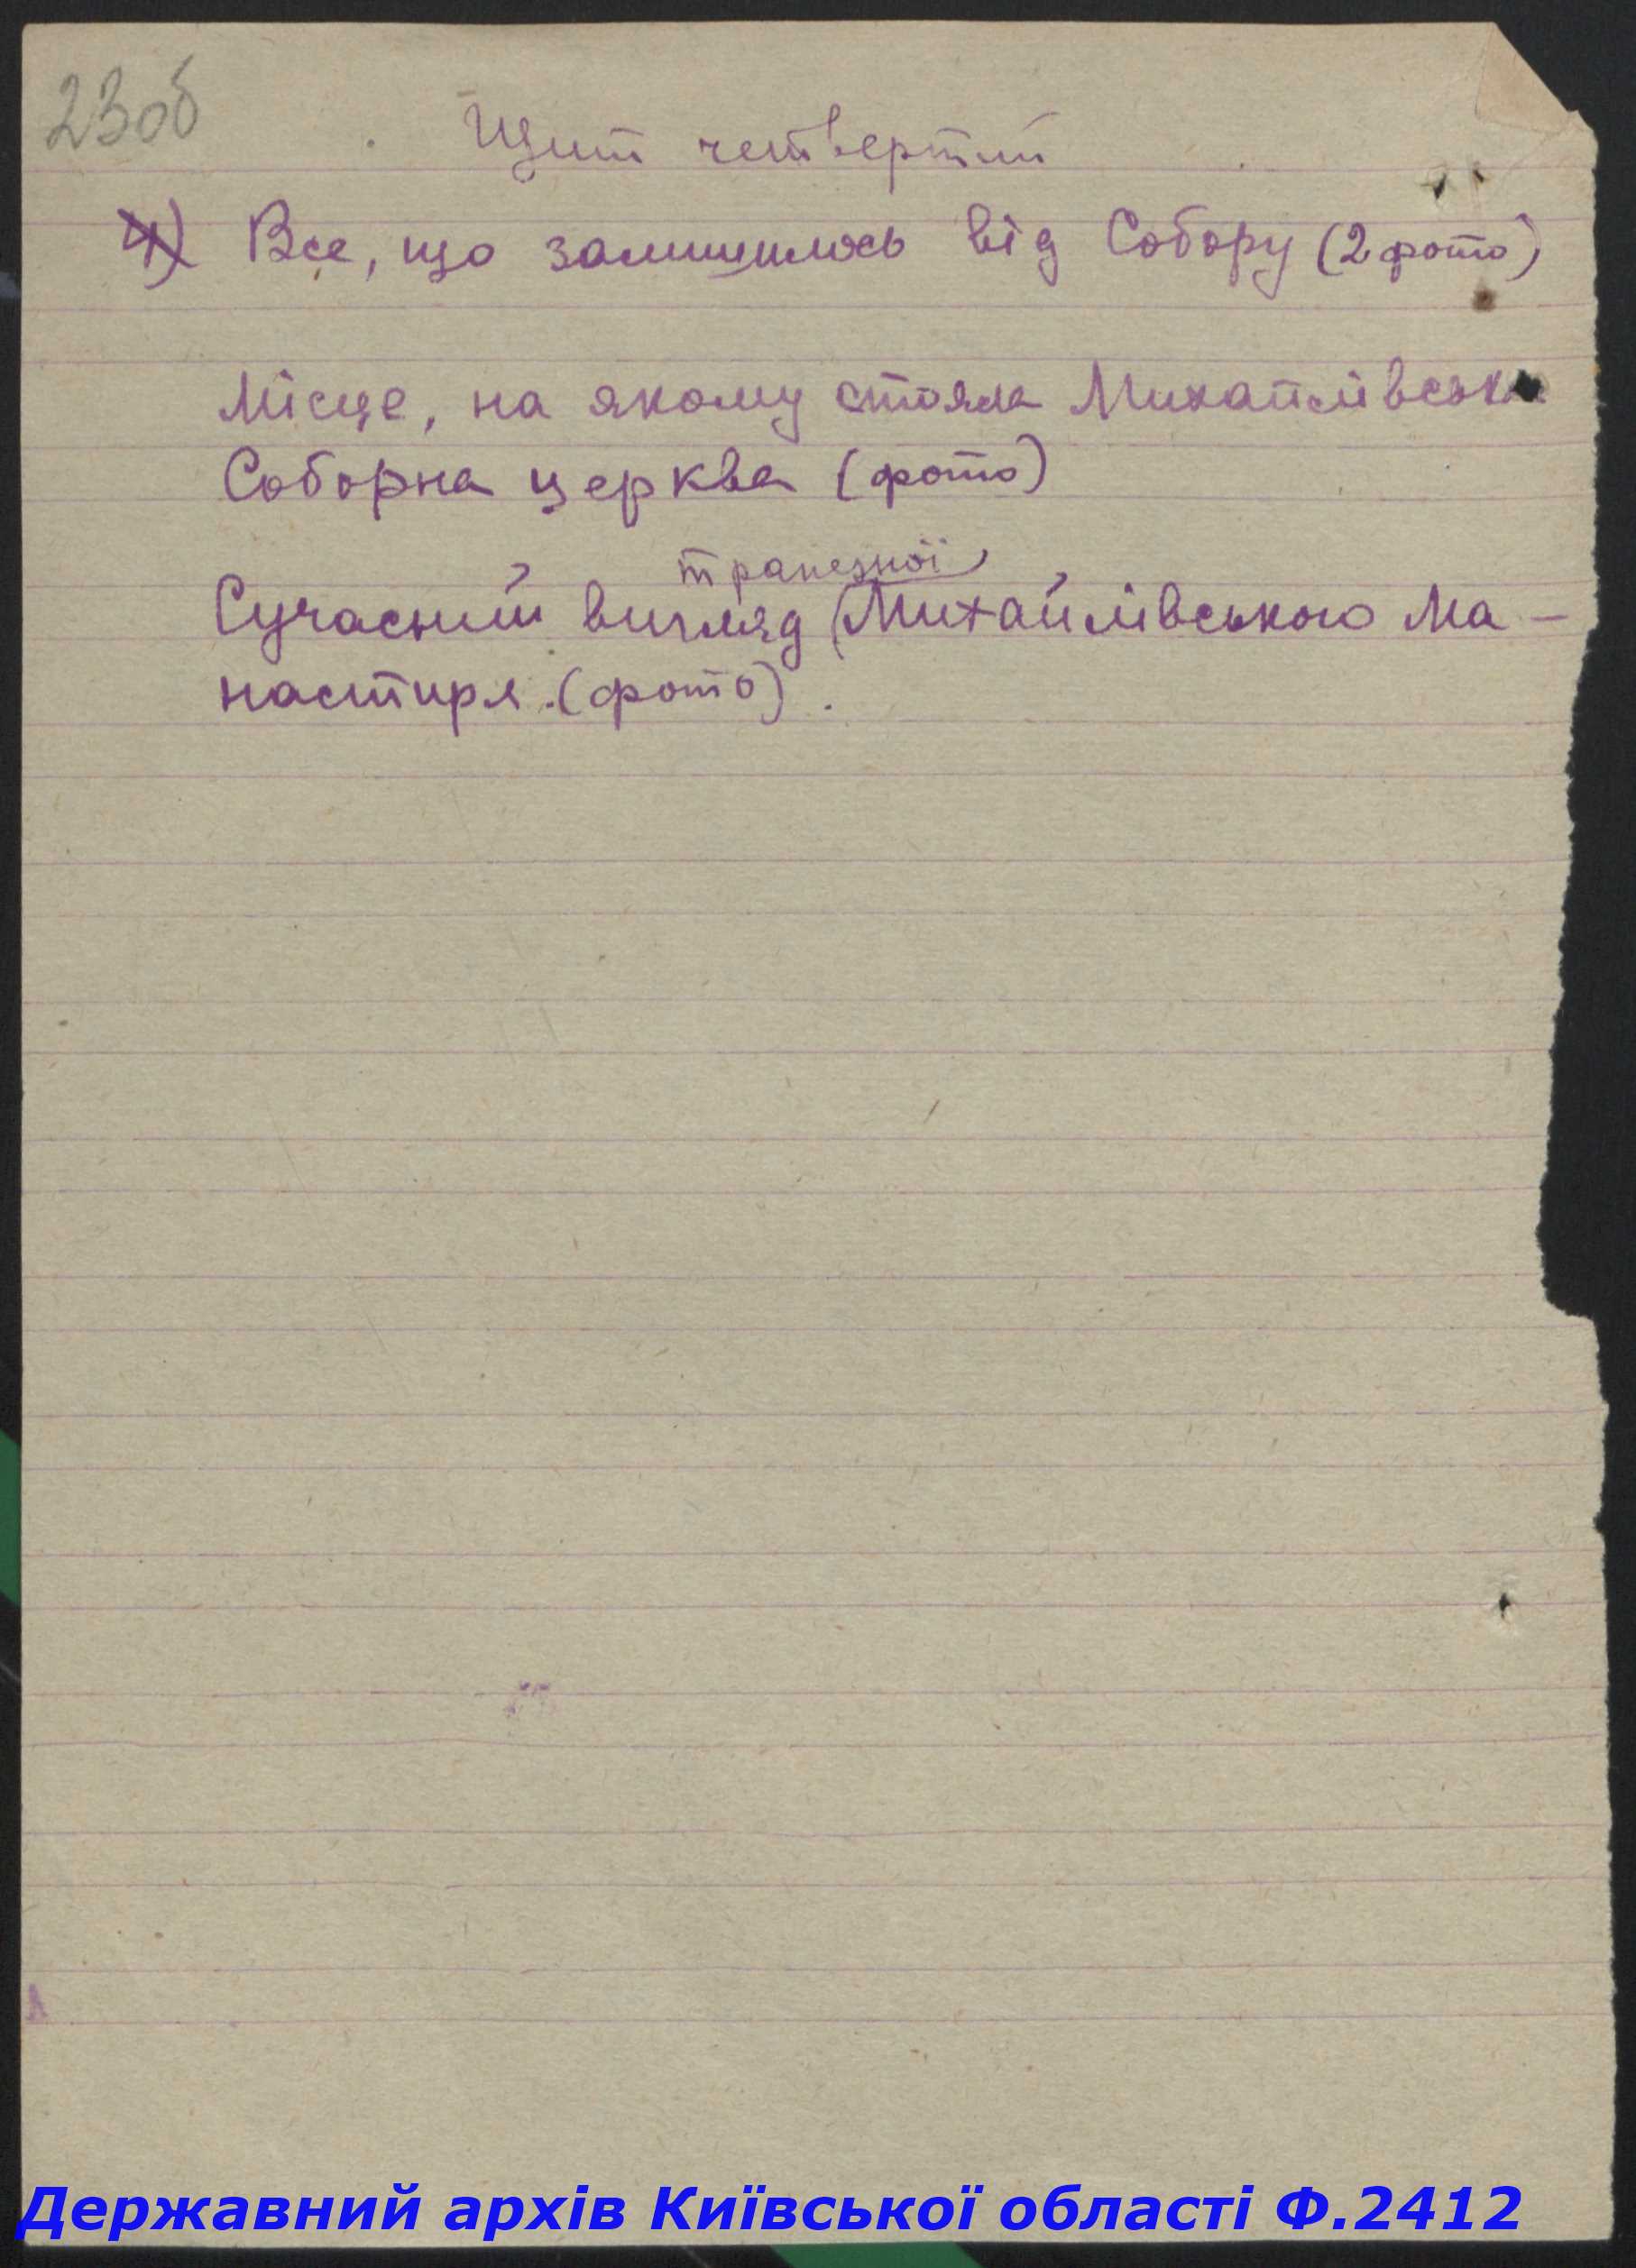 23об
Щит четвертий
4) Все, що залишилось від Собору (2 фото)
Місце, на якому стояла Михайлівська
Соборна церква (фото)
трапезної
Сучасний вигляд Михайлівського ма-
настиря. (фото).
Державний архів Київської області Ф.2412